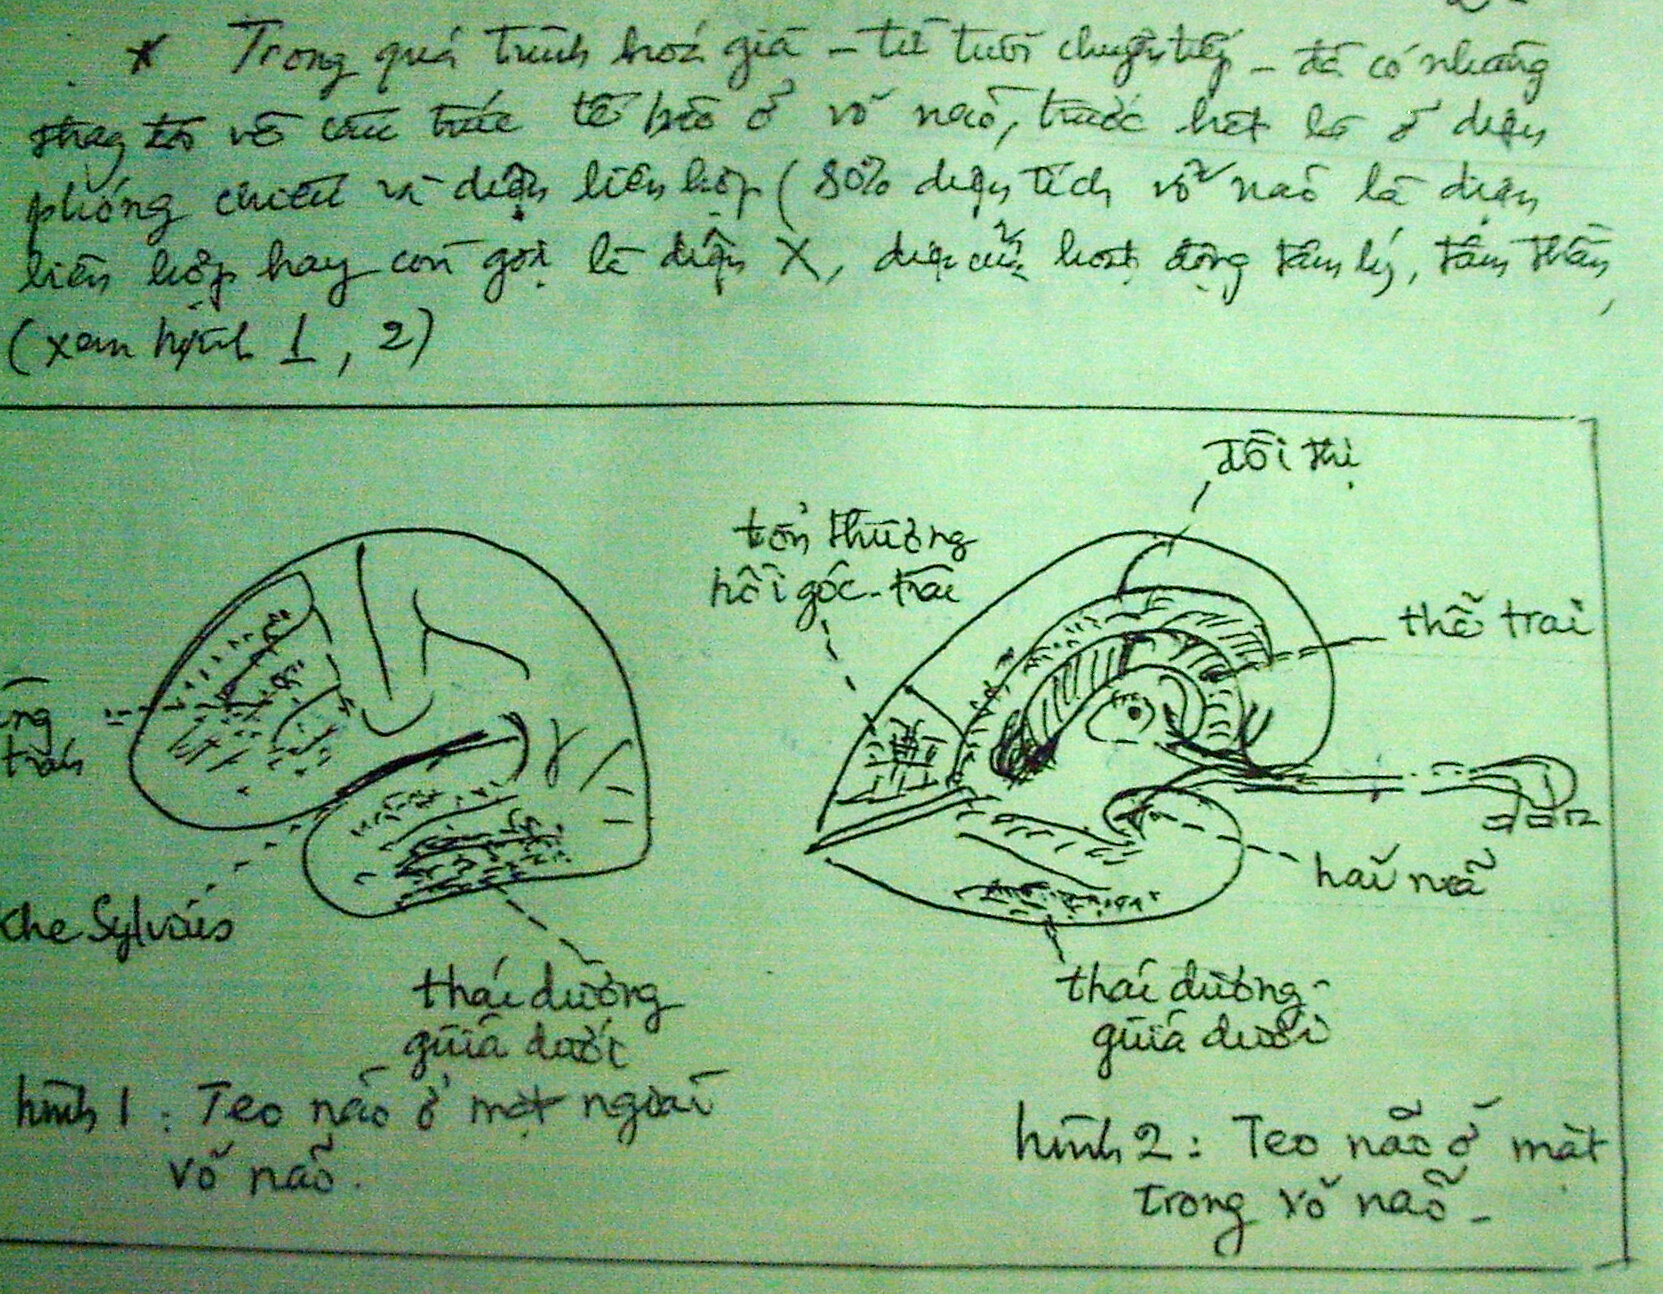 * Trong quá trình hoá già – từ tuổi chuyển tiếp – đã có những
thay đổi về cấu trúc tế bào ở vỏ não, trước hết là ở diện
phóng chiếu và diện liên hợp (80% diện tích vỏ não là diện
liên hợp hay còn gọi là diện X, diện của hoạt động tâm lý, tâm thần,
(xem hình 1, 2)
đồi thị
tổn thương
hồi góc - trái
thể trai
trán
hải mã
khe Sylvius
thái dương
giữa dưới
thái dương -
giữa dưới
hình 1 : Teo não ở mặt ngoài
vỏ não.
hình 2 : Teo não ở mặt
trong vỏ não -